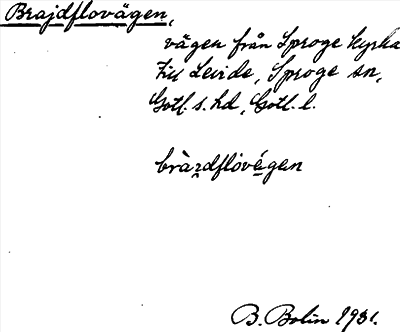 Brajdflovägen,
vägen från Sproge kyrka
till Levide, Sproge sn,
Gotl. s. hd, Gotl. l.
bràzdflòvégen
B. Bolin 1931.